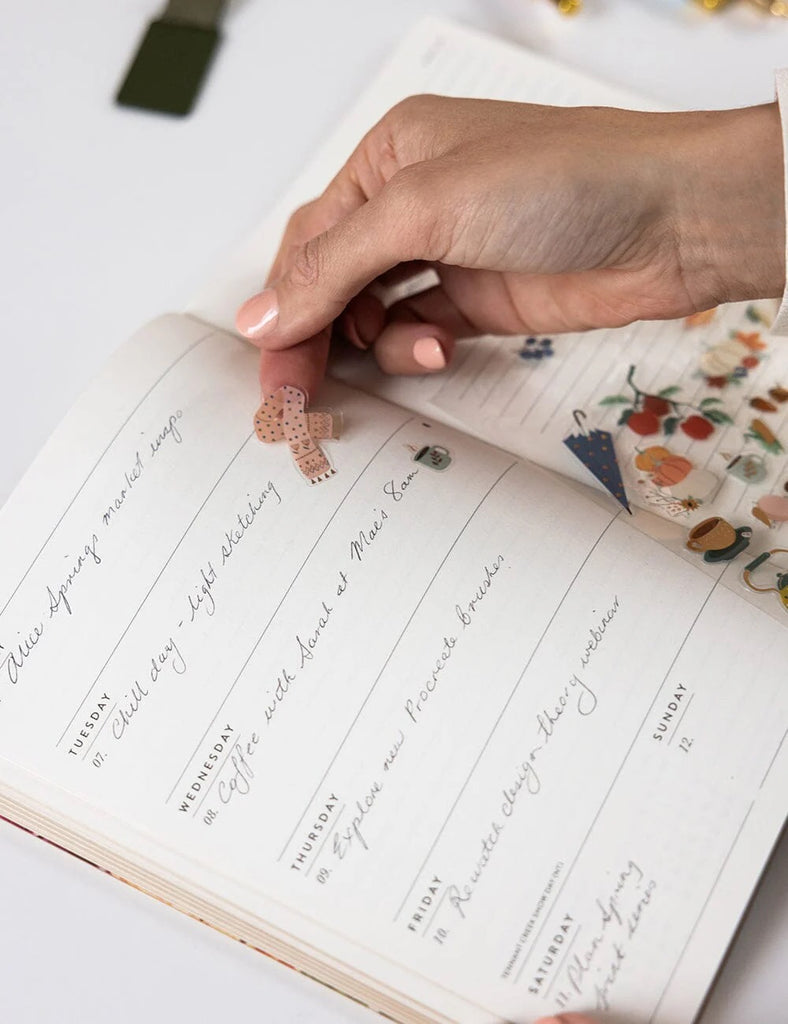 Alice Springs market inspo
TUESDAY
07.
Chill day - light sketching
WEDNESDAY
08.
Coffee with Sarah at Mae's 8am
THURSDAY
09.
Explore new Procreate brushes.
FRIDAY
10.
Rewatch design theory webinar
TENNANT CREEK SHOW DAY (NT)
SATURDAY
11.
Plan Spring
series
SUNDAY
12.